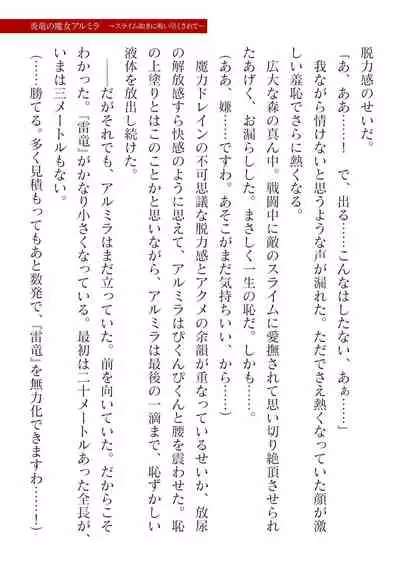 炎竜の魔女アルミラ　～スライム如きに吸い尽くされて～
脱力感のせいだ。
「あ、ああ……！　で、出る……こんなはしたない、あぁ……」
我ながら情けないと思うような声が漏れた。ただでさえ熱くなっていた顔が激
しい羞恥でさらに熱くなる。
広大な森の真ん中。戦闘中に敵のスライムに愛撫されて思い切り絶頂させられ
たあげく、お漏らしした。まさしく一生の恥だ。しかも……。
（ああ、嫌……ですわ。あそこがまだ気持ちいい、から……）
魔力ドレインの不可思議な脱力感とアクメの余韻が重なっているせいか、放尿
の解放感すら快感のように思えて、アルミラはぴくんぴくんと腰を震わせた。恥
の上塗りとはこのことかと思いながら、アルミラは最後の一滴まで、恥ずかしい
液体を放出し続けた。
――だがそれでも、アルミラはまだ立っていた。前を向いていた。だからこそ
わかった。『雷竜』がかなり小さくなっている。最初は二十メートルあった全長が、
いまは三メートルもない。
（――勝てる。多く見積もってもあと数発で、『雷竜』を無力化できますわ
（………！）